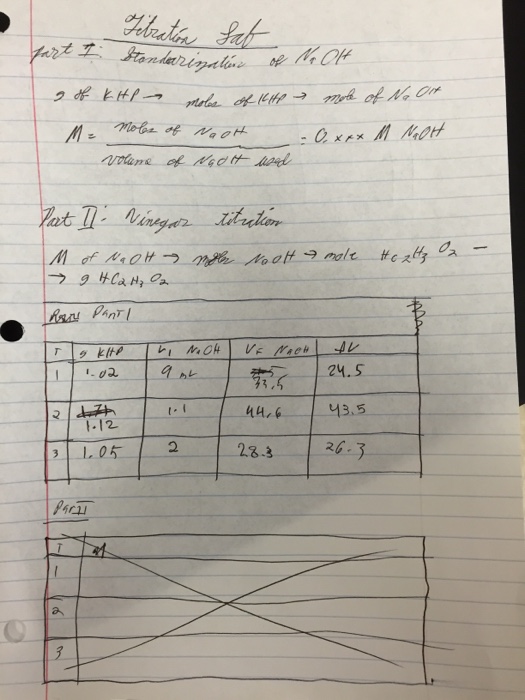 Titration Lab
Part I: Standarization of NaOH
g of KHP → moles of KHP → mole of NaOH
M = moles of NaOH / volume of NaOH used = 0.xxx M NaOH
Part II: Vinegar titration
M of NaOH → moles NaOH → mole HC2H3O2 –
→ g HC2H3O2
Part I
T g KHP Vi NaOH VF NaOH ΔV
1 1.02 9 mL 33.5 24.5
2 1.12 1.1 44.6 43.5
3 1.05 2 28.3 26.3
Part II
T M
1
2
3